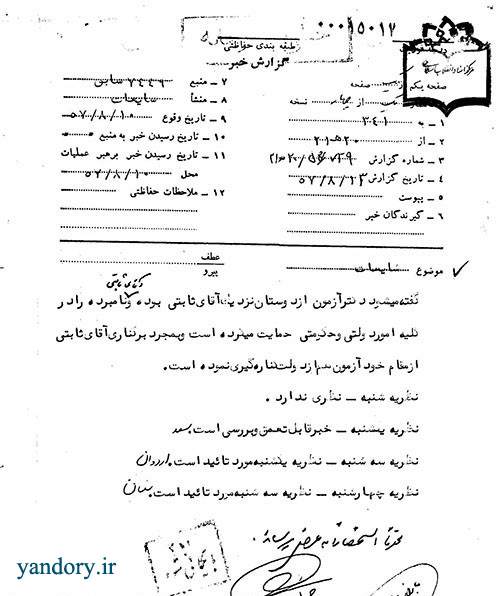 ۰۰۰۱۵۰۱۷
طبقه بندی حفاظتی
گزارش خبر
مرکز اسناد انقلاب اسلامی
صفحه یکم از صفحه
از نسخه
۱ ـ به ۳۴۱
۲ ـ از ۲۰ﻫ۲۱
۳ ـ شماره گزارش
۴ ـ تاریخ گزارش ۵۷/۸/۲۳
۵ ـ پیوست
۶ ـ گیرندگان خبر
۷ ـ منبع ۷۴۴۶ سابق
۸ ـ منشأ شایعات
۹ ـ تاریخ وقوع ۵۷/۸/۱۰
۱۰ ـ تاریخ رسیدن خبر به منبع
۱۱ ـ تاریخ رسیدن خبر برهبر عملیات
محل ۵۷/۸/۱۰
۱۲ ـ ملاحظات حفاظتی
موضوع شایعات
عطف
پیرو
گفته میشود دکتر آزمون از دوستان نزدیک آقای ثابتی بوده و آقای ثابتی نامبرده را در
کلیه امور دولتی و حکومتی حمایت میکرده است و بمجرد برکناری آقای ثابتی
از مقام خود آزمون هم از دولت کناره گیری نموده است.
نظریه شنبه ـ نظری ندارد.
نظریه یکشنبه ـ خبر قابل تعمق و بررسی است. سعد
نظریه سه شنبه ـ نظریه یکشنبه مورد تائید است. اردوان
نظریه چهارشنبه ـ نظریه سه شنبه مورد تائید است.
بعرض برسد.
بایگانی شد
yandory.ir